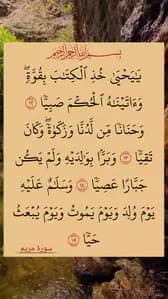 بِسْمِ اللَّهِ الرَّحْمَٰنِ الرَّحِيمِ
يَٰيَحْيَىٰ خُذِ ٱلْكِتَٰبَ بِقُوَّةٍۖ
وَءَاتَيْنَٰهُ ٱلْحُكْمَ صَبِيًّا ١٢
وَحَنَانًا مِّن لَّدُنَّا وَزَكَوٰةًۖ وَكَانَ
تَقِيًّا ١٣ وَبَرًّۢا بِوَٰلِدَيْهِ وَلَمْ يَكُن
جَبَّارًا عَصِيًّا ١٤ وَسَلَٰمٌ عَلَيْهِ
يَوْمَ وُلِدَ وَيَوْمَ يَمُوتُ وَيَوْمَ يُبْعَثُ
حَيًّا ١٥
سورة مريم